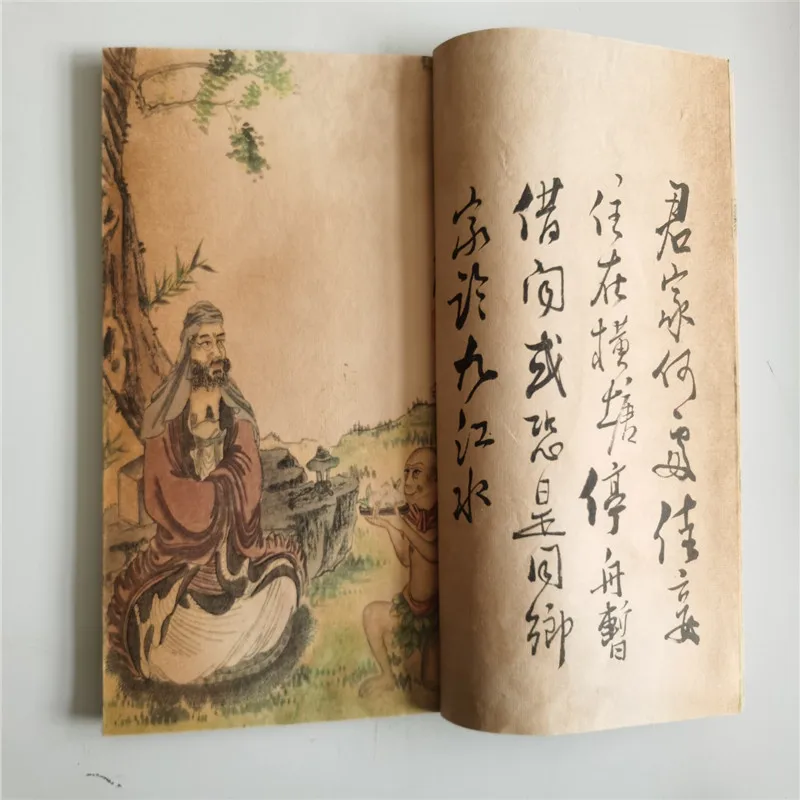 君家何處佳妾
住在横塘停舟暫
借问或恐是同鄉
家临九江水